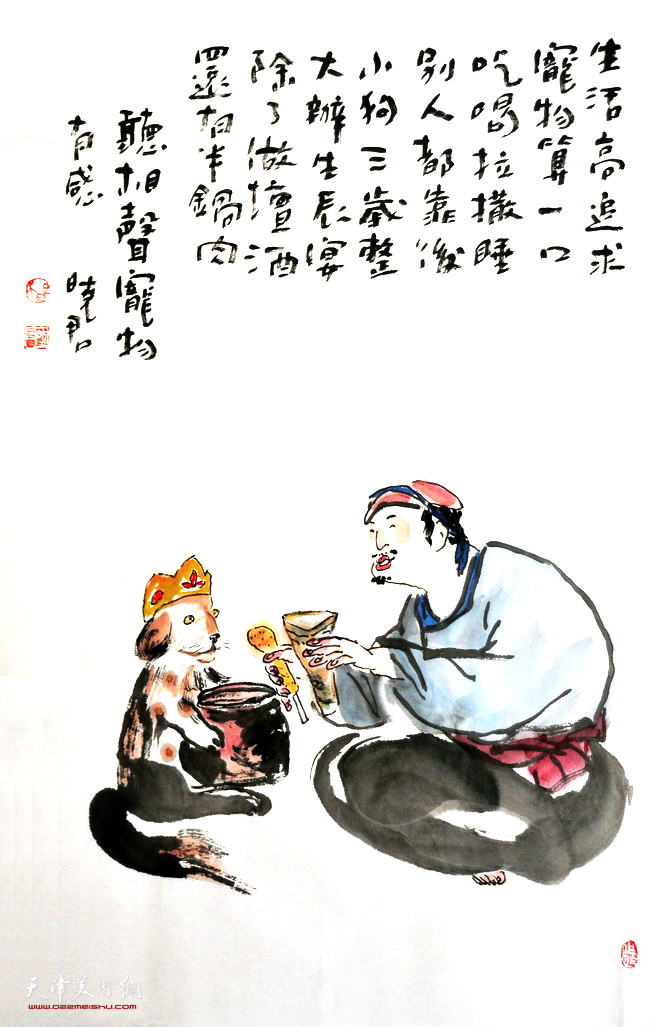 生活高追求
寵物算一口
吃喝拉撒睡
别人都靠後
小狗三歲整
大辦生辰宴
除了做壇酒
還有半鍋肉
聽相聲寵物
有感 晓君
天津美术網
www.022meishu.com